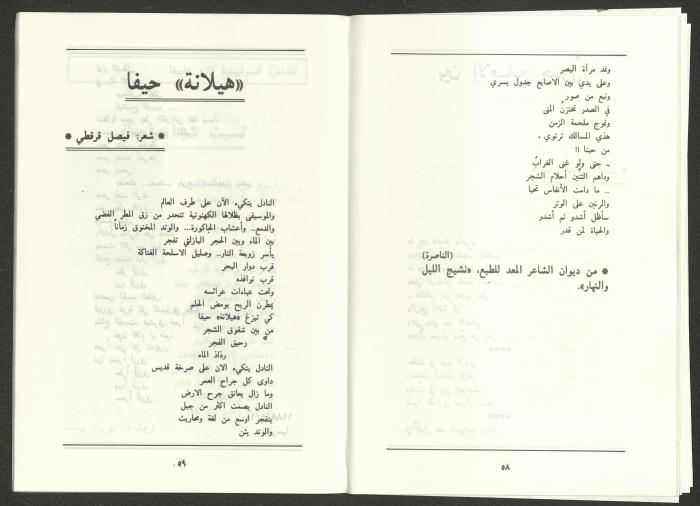 وتمد مرآة البصر
وعلى يدي بين الاصابع جدول يسري
ونبع من صور
في الصدر تختزن المنى
وتموج ملحمة الزمن
هذي المسالك ترتوي ،
من حبنا !!
ـ حتى ولو غنى الغرابُ
وداهم التنّين أحلام الشجر
.. ما دامت الأنفاس تحيا
والرنين على الوتر
سأظل أشدو ثم أشدو
والحياة لمن قدر
(الناصرة)
* من ديوان الشاعر المعد للطبع، «نشيج الليل
والنهار».
٥٨
«هيلانة» حيفا
* شعر: فيصل قرقطي *
النادل يتكيء الآن على طرف العالم
والموسيقى بظلالها الكهنوتية تتحدر من زق المطر الفضي
والدمع.. وأعشاب الحاكورة... والوتد المخنوق زماناً
بين الماء وبين الحجر البازلتي تفجر
يأسر زوبعة النار.. وصليل الاسلحة الفتاكة
قرب دوار البحر
قرب نوافذه
وتحت عباءات عرائسه
يطرن الريح بومض الحلم
كي تبزغ «هيلانة» حيفا
من بين شقوق الشجر
رحيق الفجر
رذاذ الماء
النادل يتكيء الان على صرخة قديس
داوى كل جراح العمر
وما زال يعانق جرح الارض
النادل يصمت اكثر من جبل
يتفجر اوسع من لغة ومحاريث
والوتد يئن
٥٩